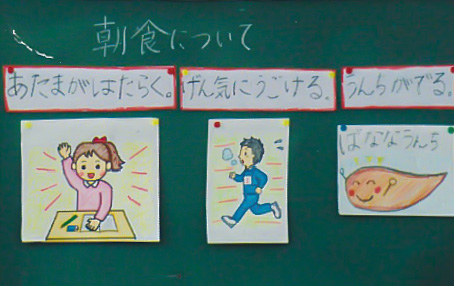 朝食について
あたまがはたらく。
げん気にうごける。
うんちがでる。
ばななうんち